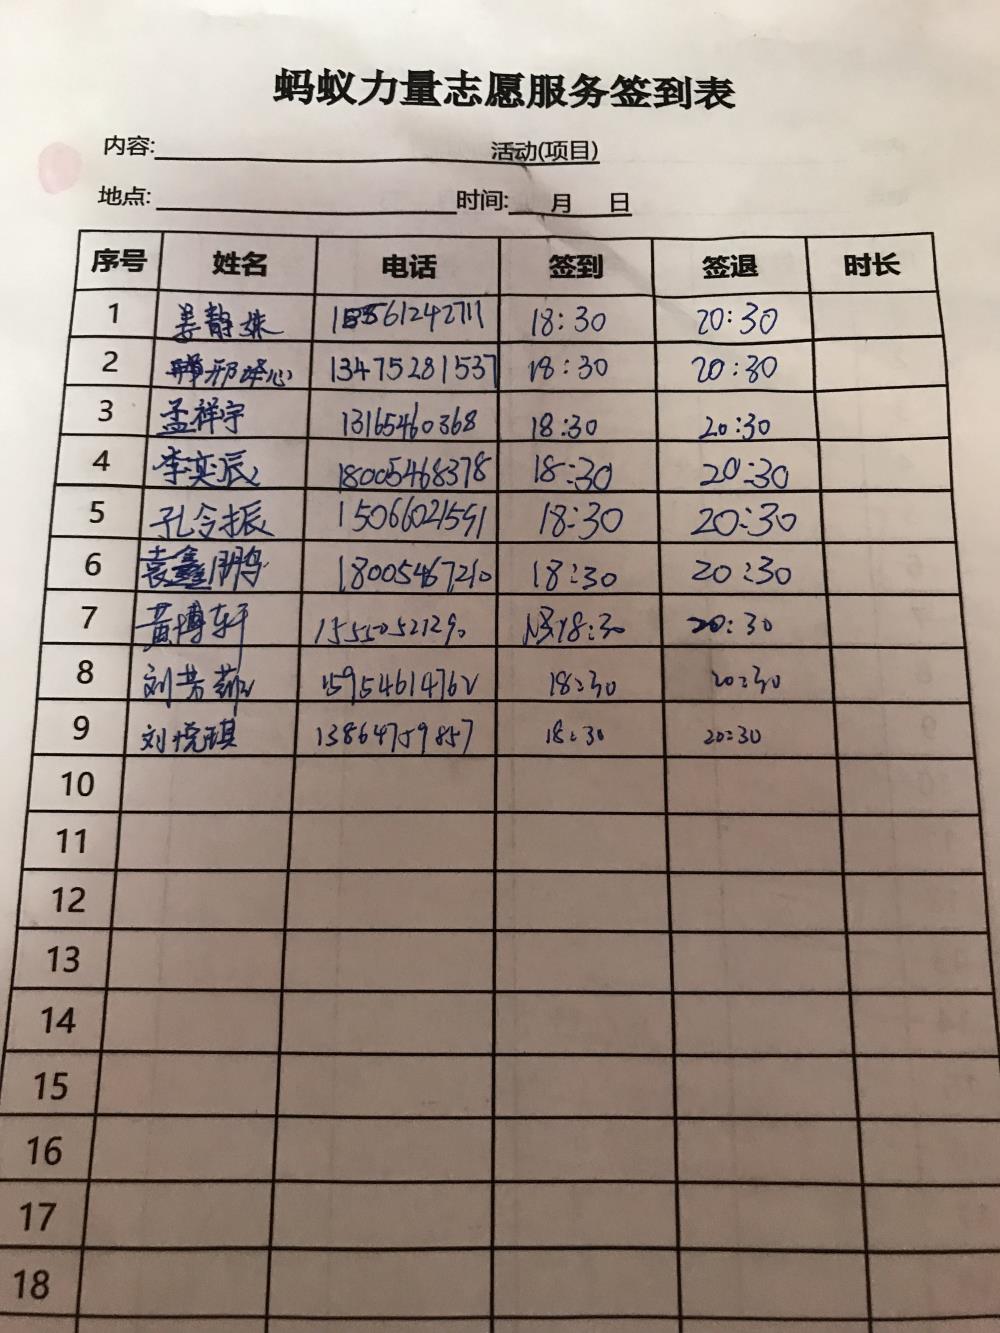 蚂蚁力量志愿服务签到表
内容: 活动(项目)
地点: 时间: 月 日
序号 姓名 电话 签到 签退 时长
1 姜静姝 15561242711 18:30 20:30
2 13475281537 18:30 20:30
3 孟祥宇 13165460368 18:30 20:30
4 李奕辰 18005468378 18:30 20:30
5 孔令振 15066021591 18:30 20:30
6 袁鑫鹏 18005467210 18:30 20:30
7 黄博轩 15550521290 18:30 20:30
8 刘芳菲 15954614762 18:30 20:30
9 刘悦琪 13864759857 18:30 20:30
10
11
12
13
14
15
16
17
18